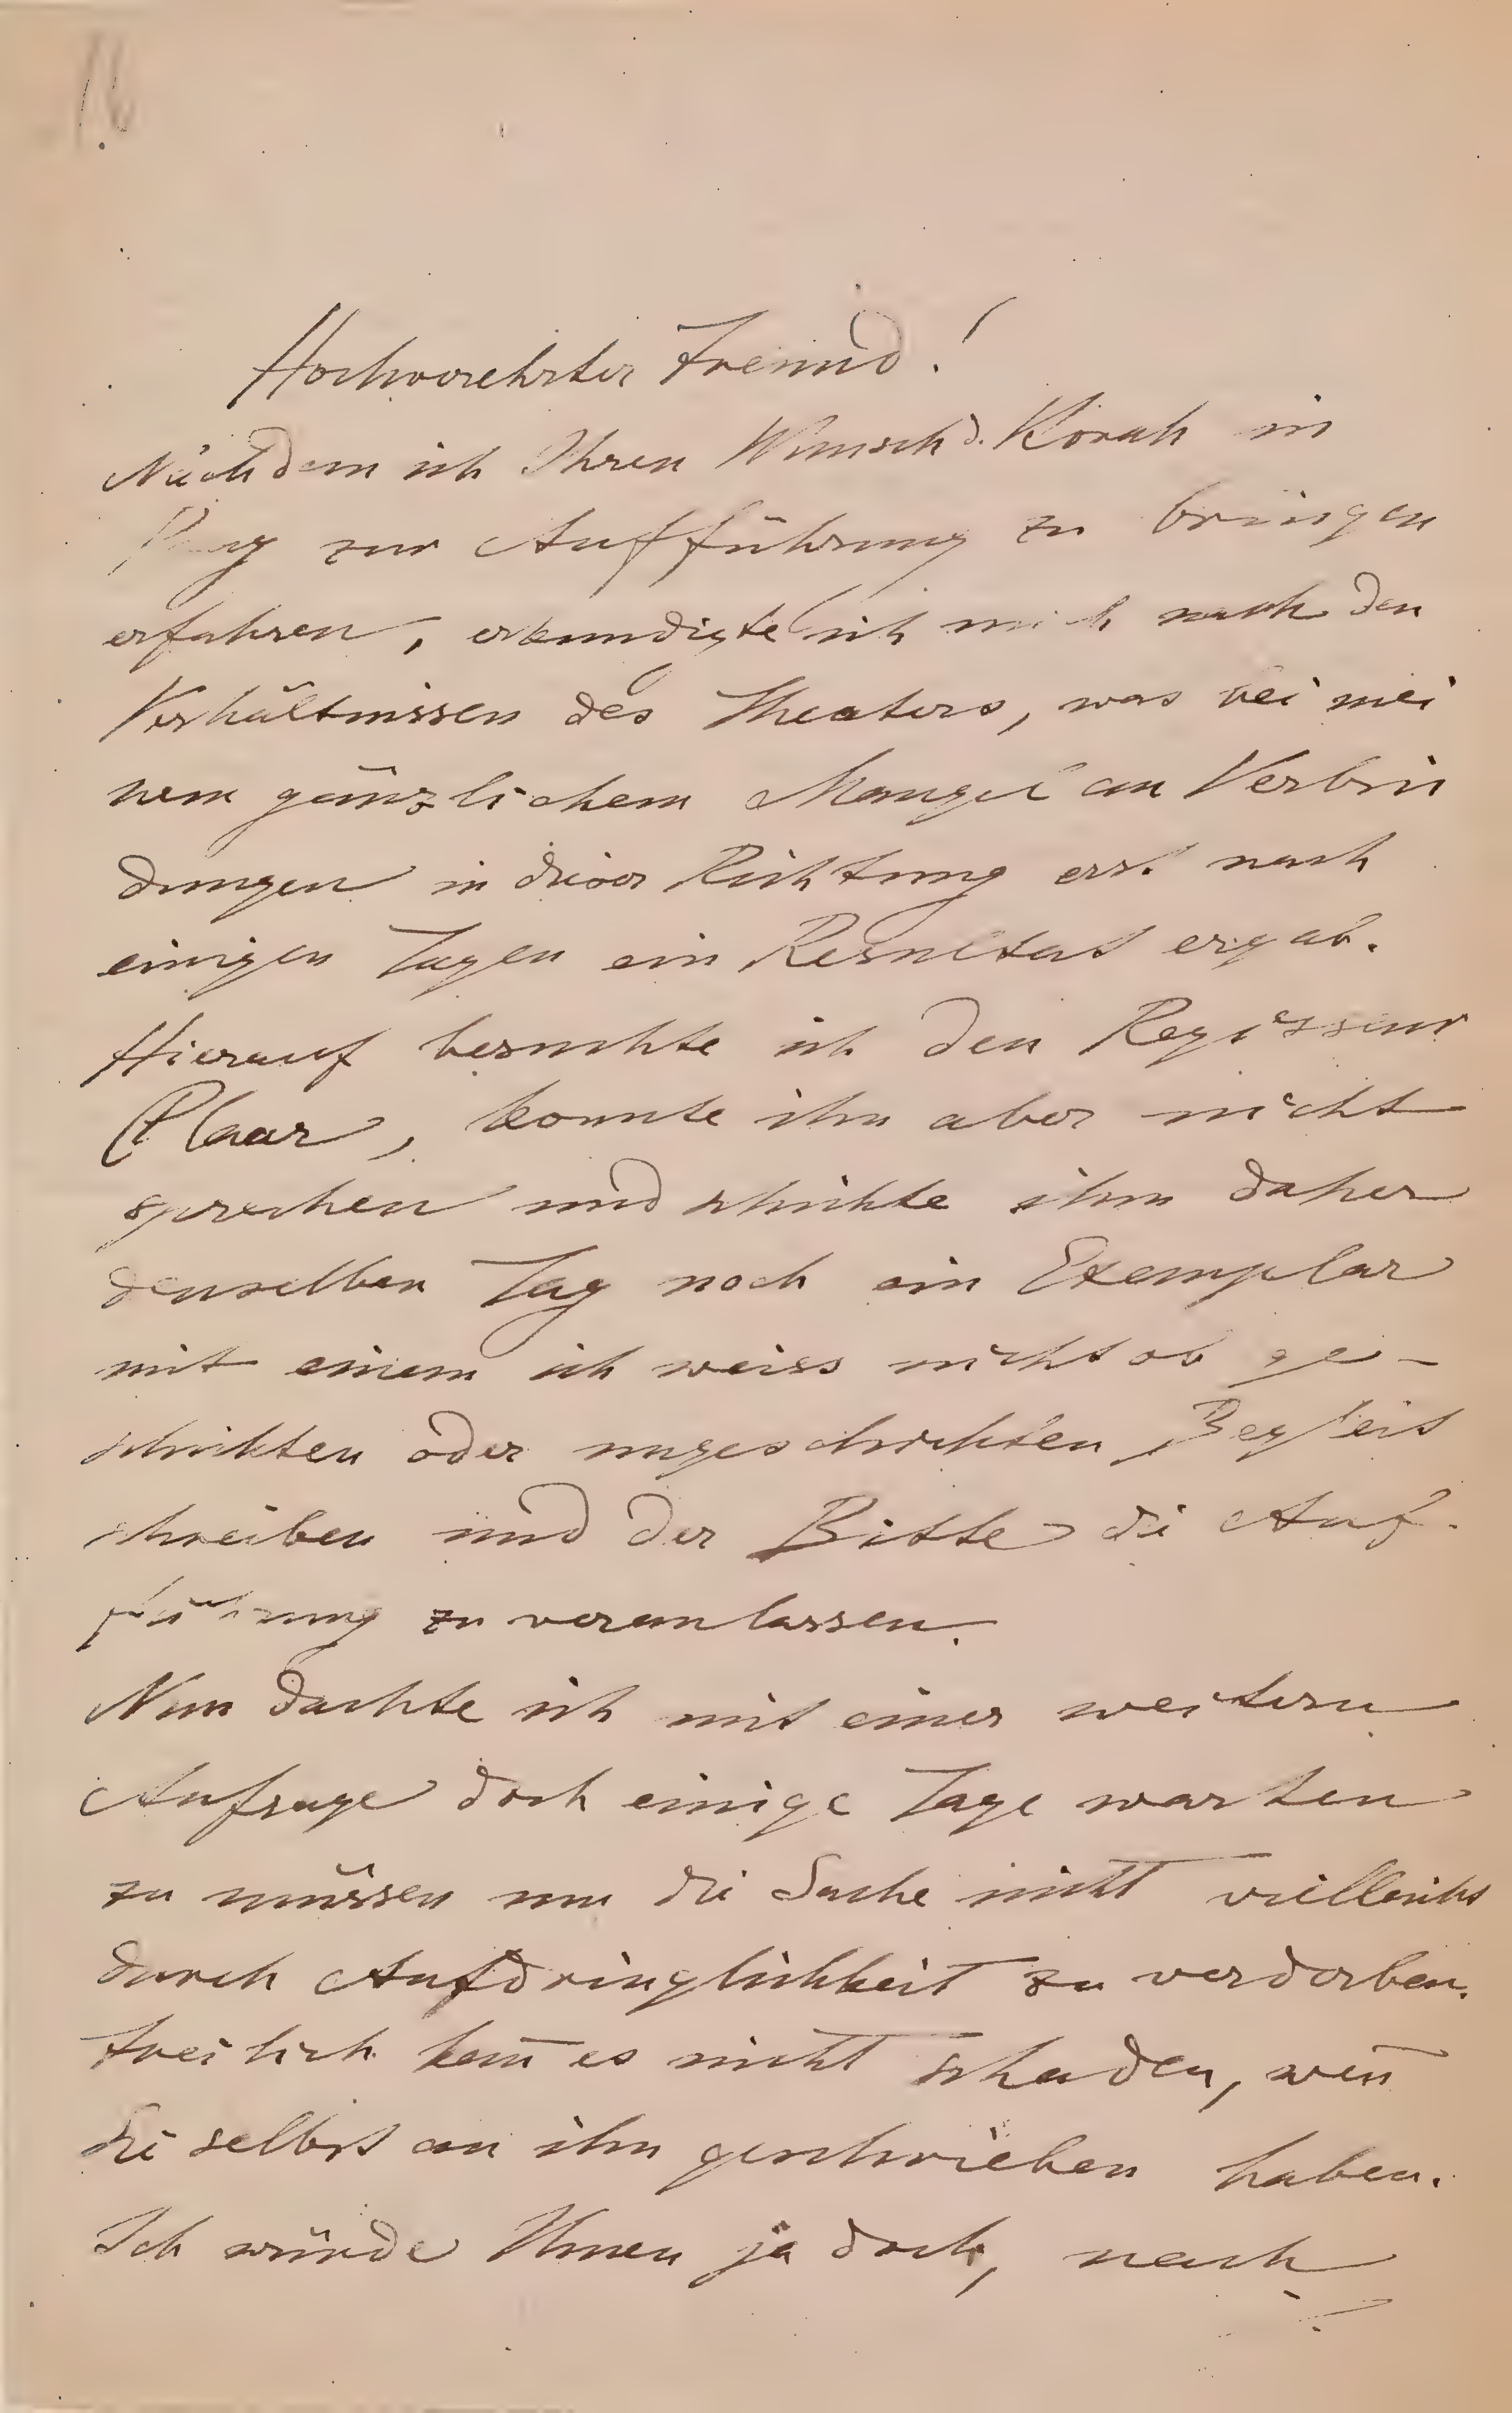 16
Hochverehrter Freund!
Nachdem ich Ihren Wunsch d. Korah in
zur Aufführung zu bringen
erfahren, erkundigte ich mich nach den
Verhältnissen des Theaters, was bei mei
nem gänzlichem Mangel an Verbin
dungen in dieser Richtung erst nach
einigen Tagen ein Resultat ergab.
Hierauf besuchte ich den Regisseur
Plaar, konnte ihn aber nicht
sprechen und schickte ihm daher
denselben Tag noch ein Exemplar
mit einem ich weiss nicht ob ge-
schickten oder ungeschickten Begleit
schreiben und der Bitte die Auf-
führung zu veranlassen.
Nun dachte ich mit einer weitern
Anfrage doch einige Tage warten
zu müssen um die Sache nicht vielleicht
durch Aufdringlichkeit zu verderben.
Freilich kan̄ es nicht schaden, wen̄
Sie selbst an ihn geschrieben haben.
Ich würde Ihnen ja doch, nach